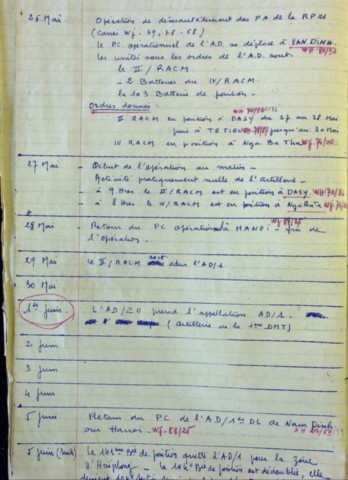 26 Mai Opération de démantèlement des PA de la RP 21
(Carres Wj. 49. 78 - 68)
le P.C. opérationnel de l'A.D. se déplace à VAN DINH.
les unités sous les ordres de l'A.D. sont
le II / RACM
- 2 Batteries du IV/RACM
la 103 Batterie de position.
Ordres donnés :
II RACM en position à DASY du 27 au 28 Mai
puis à jusqu'au 30 Mai
IV RACM en position à Nga Ba Tha Wj 76/00
27 Mai - Début de l'opération au matin -
Activité pratiquement nulle de l'Artillerie
- à 9 Hres le II/RACM est en position à DASY
- à 8 Hres le IV/RACM est en position à Nga Ba Tha
28 Mai - Retour du PC opérationnel à HANOI - fin de
l'opération.
29 Mai le II/RACM est dans l'AD/1
30 Mai
1er Juin. L'AD/ZO prend l'appellation AD/1 -
(Artillerie de la 1ère DMT)
2 juin
3 juin
4 juin
5 juin Retour du PC de l'AD/1ère DL de Nam Dinh
sur Hanoi - Wj-88/25
5 juin (suite) le de position quitte l'AD/1 pour la Zone
d'Haiphong - la de position est dédoublée, elle